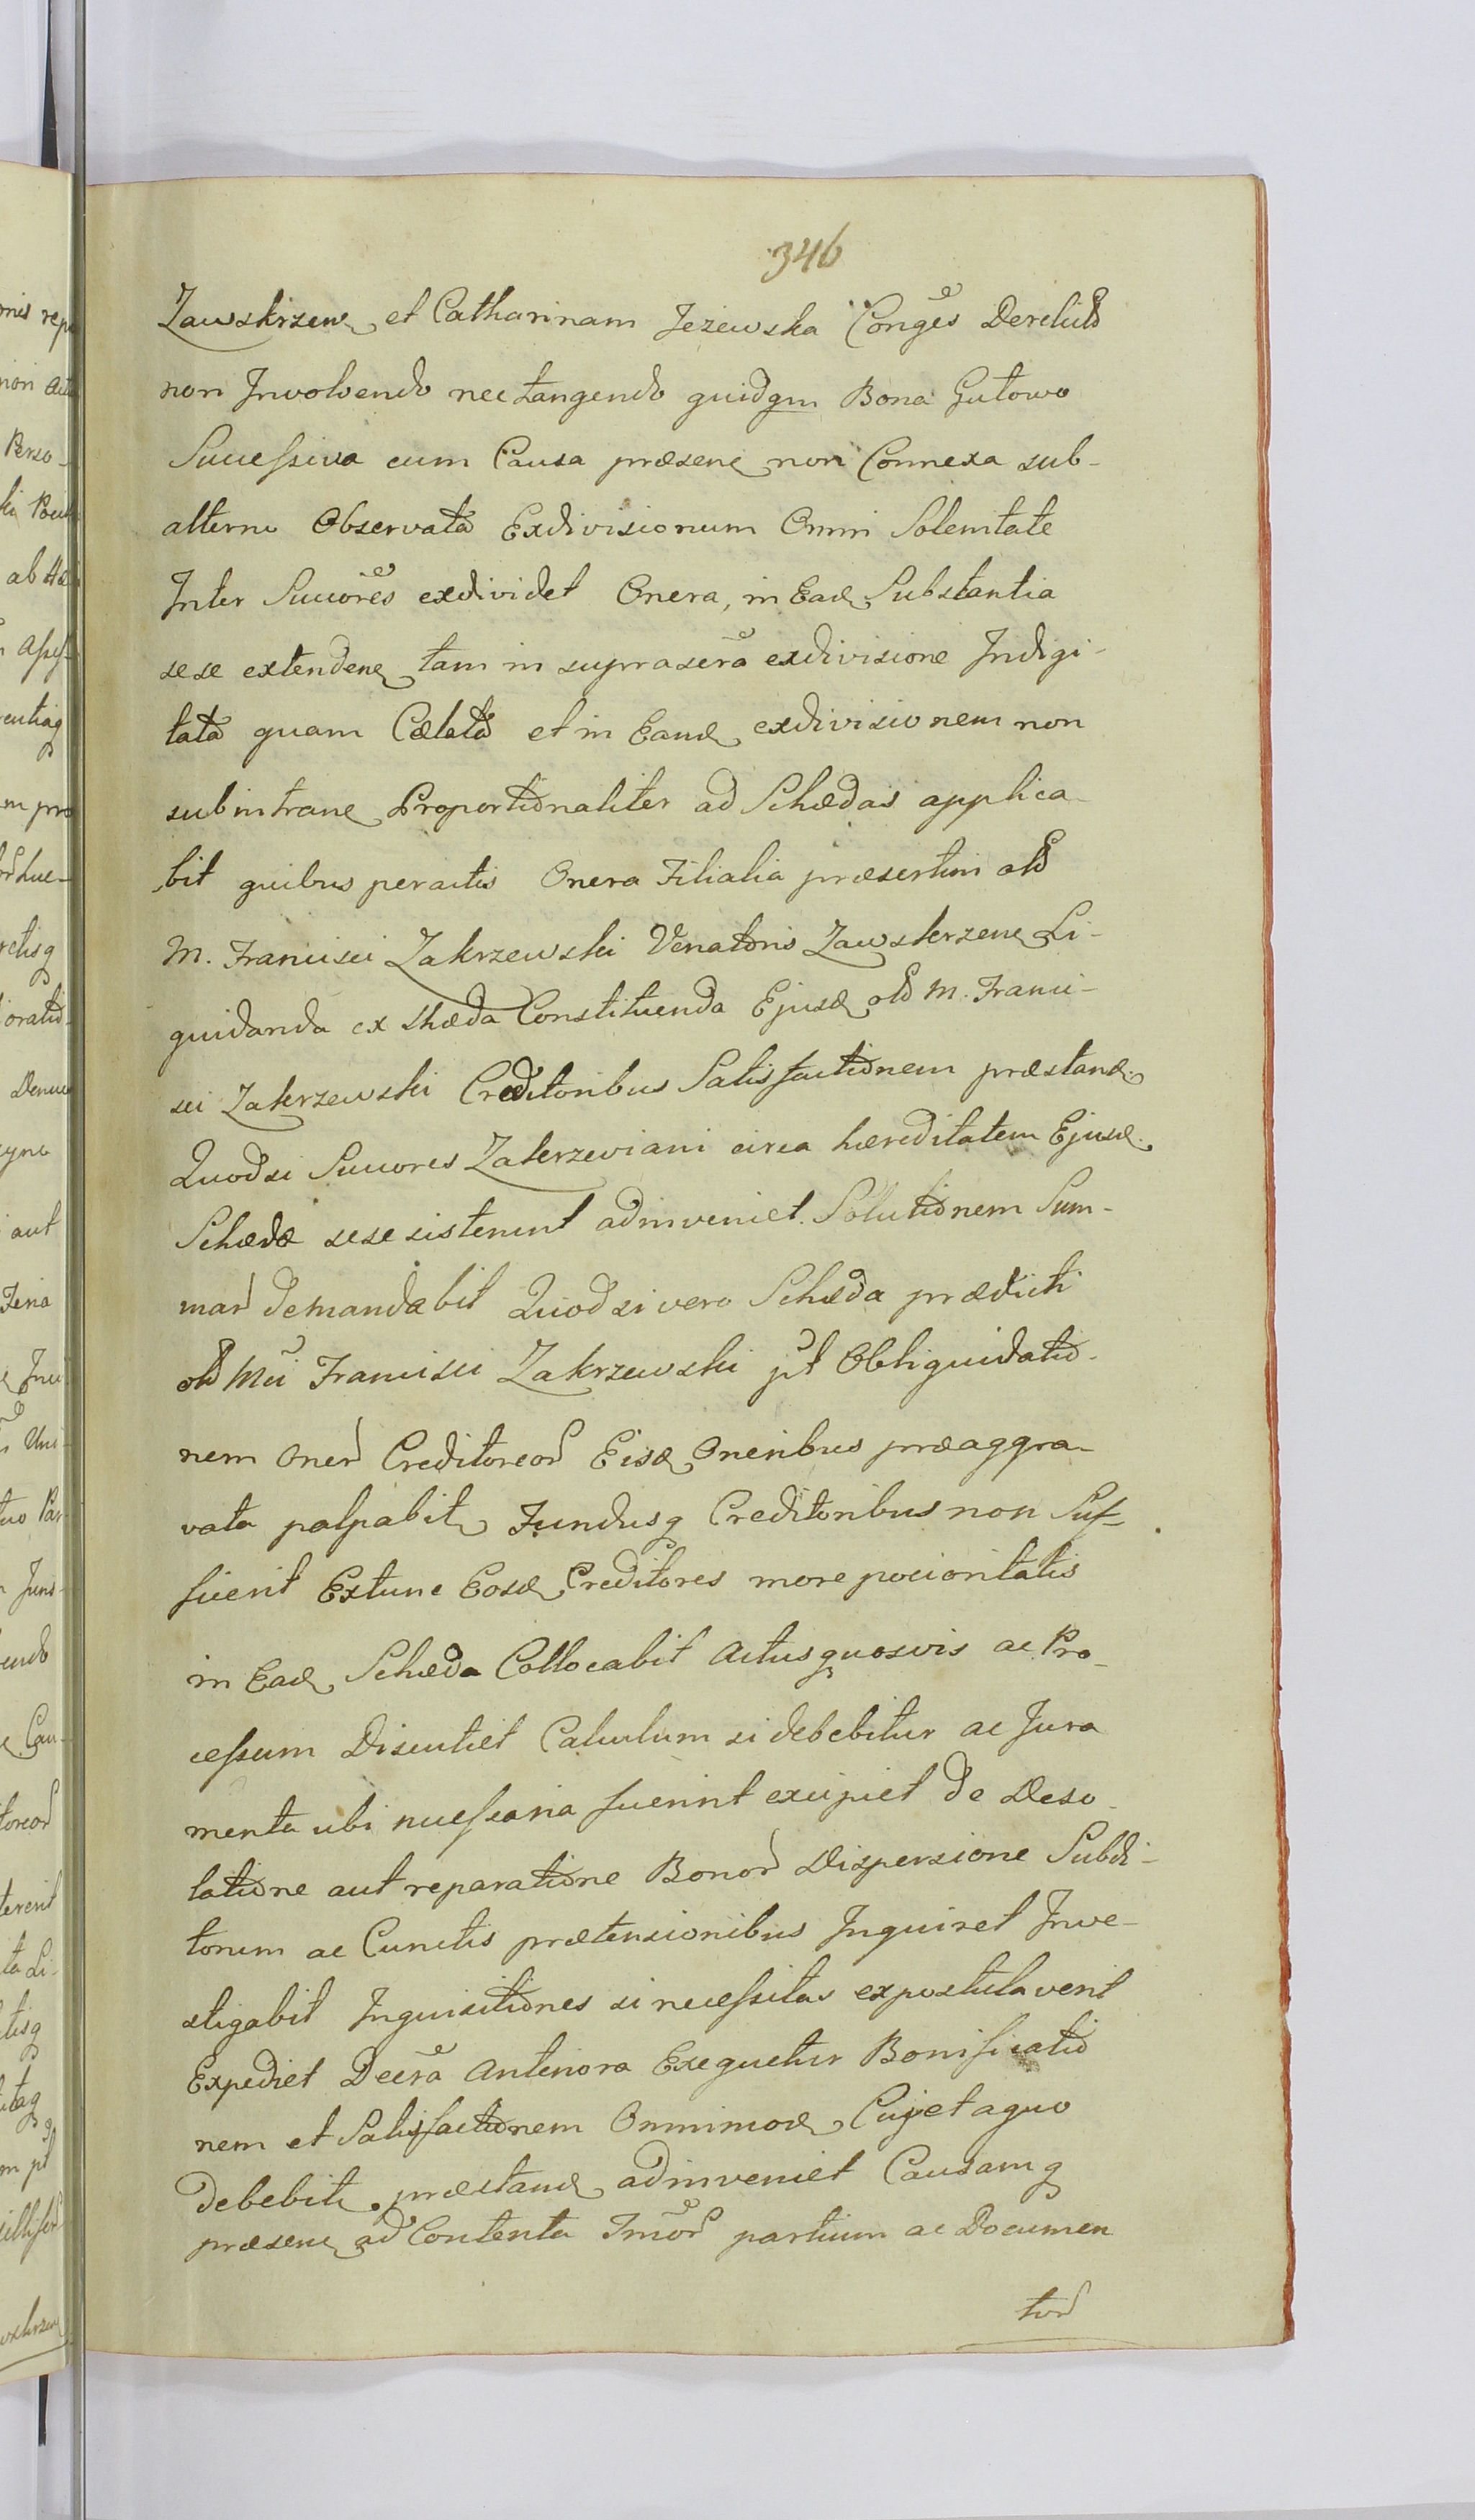 346
Zawskrzen et Catharinam Jezewska Conges Derelict
non Involvendo nec tangendo quidqm Bona Gutowo
Succeſsiva cum Causa præsen non Connexa sub-
alterne Observata Exdivisionum Omni Solenitate
Inter Succores exdividet Onera, in Ead Substantia
sese extenden tam in suprascra exdivisione Indigi-
tata quam Cælata et in Eand exdivisionem non
subintran Proportionaliter ad Schædas applica-
bit quibus peractis Onera Filialia præsertim olð
M. Francisci Zakrzewski Venatoris Zawskrzen Li-
quidanda ex Schæda Constituenda Ejusd olð M. Franci-
sci Zakrzewski Creditoribus Satisfactionem præstand.
Quodsi Succores Zakrzeviani circa hæreditatem Ejusd.
Schædæ sese sisterint adinveniet. Solutionem Sum-
mar demandabit Quodsi vero Schæda prædicti
olð Mci Francisci Zakrzewski pt Obliquidatio-
nem Oner Creditoreor Eisd Oneribus præaggra-
vata palpabit Fundusq Creditoribus non Suf-
fuerit Extunc Eosd Creditores more pocioritatis
in Ead Schæda Collocabit Actus quosvis ac Pro-
ceſsum Discutiet Calculum si debebitur ac Jura
menta ubi neceſsaria fuerint excipiet de Deso-
latione aut reparatione Bonor Dispersione Subdi-
torum ac Cunctis prætensionibus Inquiret Inve-
stigabit Inquisitiones si neceſsitas expostulaverit
Expediet Decra Anteriora Exequetur Bonificatio
nem et Satisfactionem Omnimod Cujet aquo
debebit præstand adinveniet Causamq
præsen ad Contenta Tmor partium ac Documen
tor